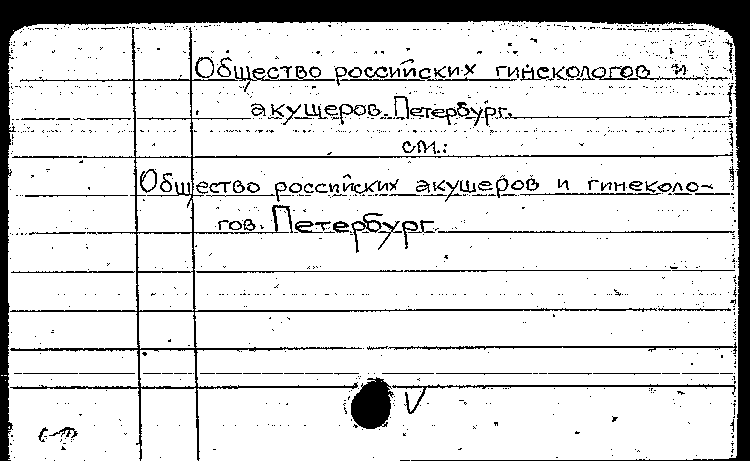 Общество российских гинекологов и
акущеров. Петербург.
см.:
Общество российских акущеров и гинеколо-
гов. Петербург.
V